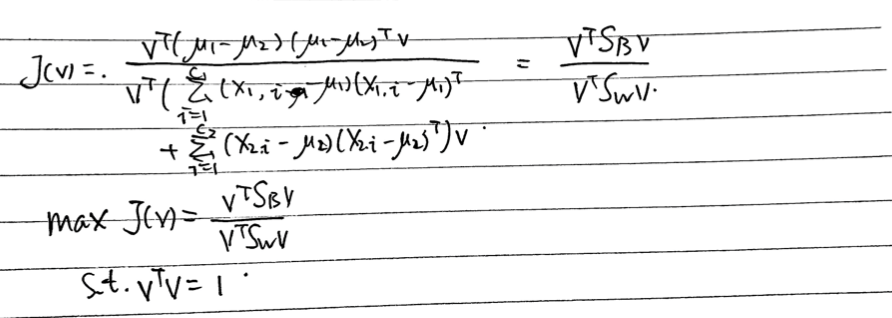 J(v) = . \frac{v^T(μ_1-μ_2)(μ_1-μ_2)^T v}{v^T(\sum_{i=1}^{c_1}(x_{1,i}-μ_1)(x_{1,i}-μ_1)^T + \sum_{i=1}^{c_2}(x_{2i}-μ_2)(x_{2i}-μ_2)^T)v} = \frac{v^T S_B v}{v^T S_W v}.
max J(v) = \frac{v^T S_B v}{v^T S_W v}
s.t. v^T v = 1.